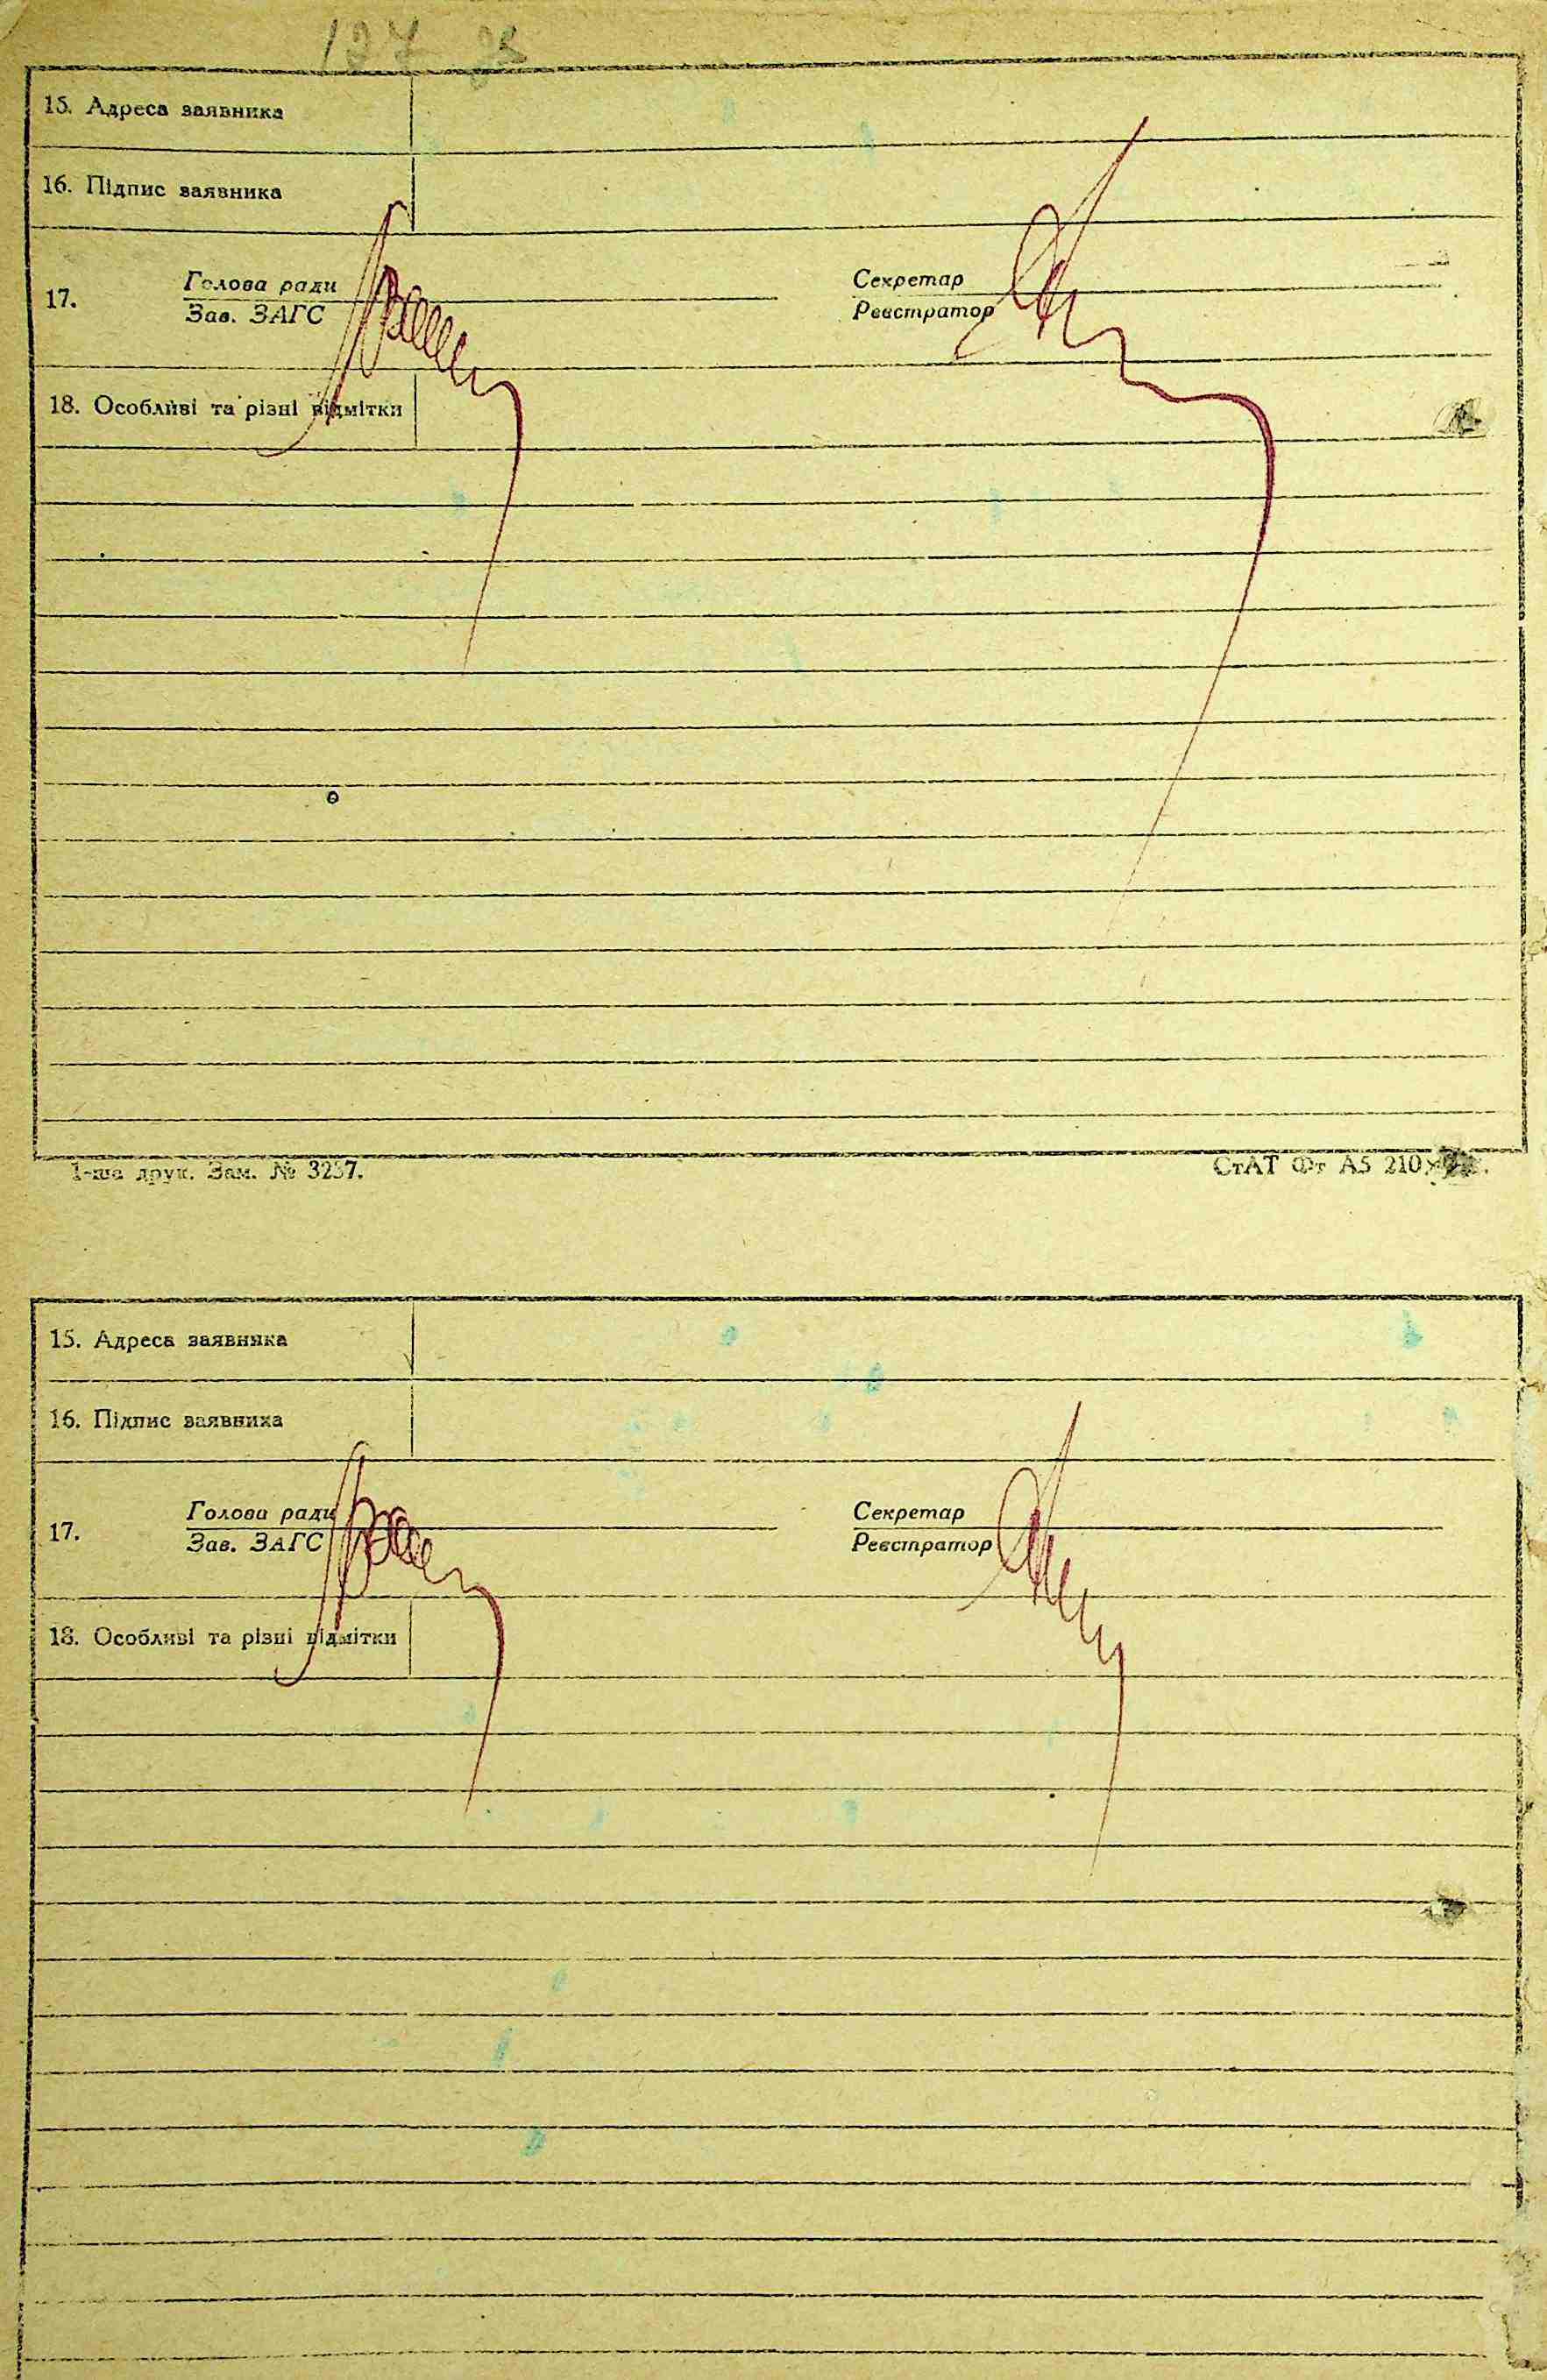 127
15. Адреса заявника
16. Підпис заявника
17. Голова ради Секретар
Зав. ЗАГС Реєстратор
18. Особливі та різні відмітки
1-ша друк. Зам. № 3257. СтАТ Фт А5 210
15. Адреса заявника
16. Підпис заявника
17. Голова ради Секретар
Зав. ЗАГС Реєстратор
18. Особливі та різні відмітки